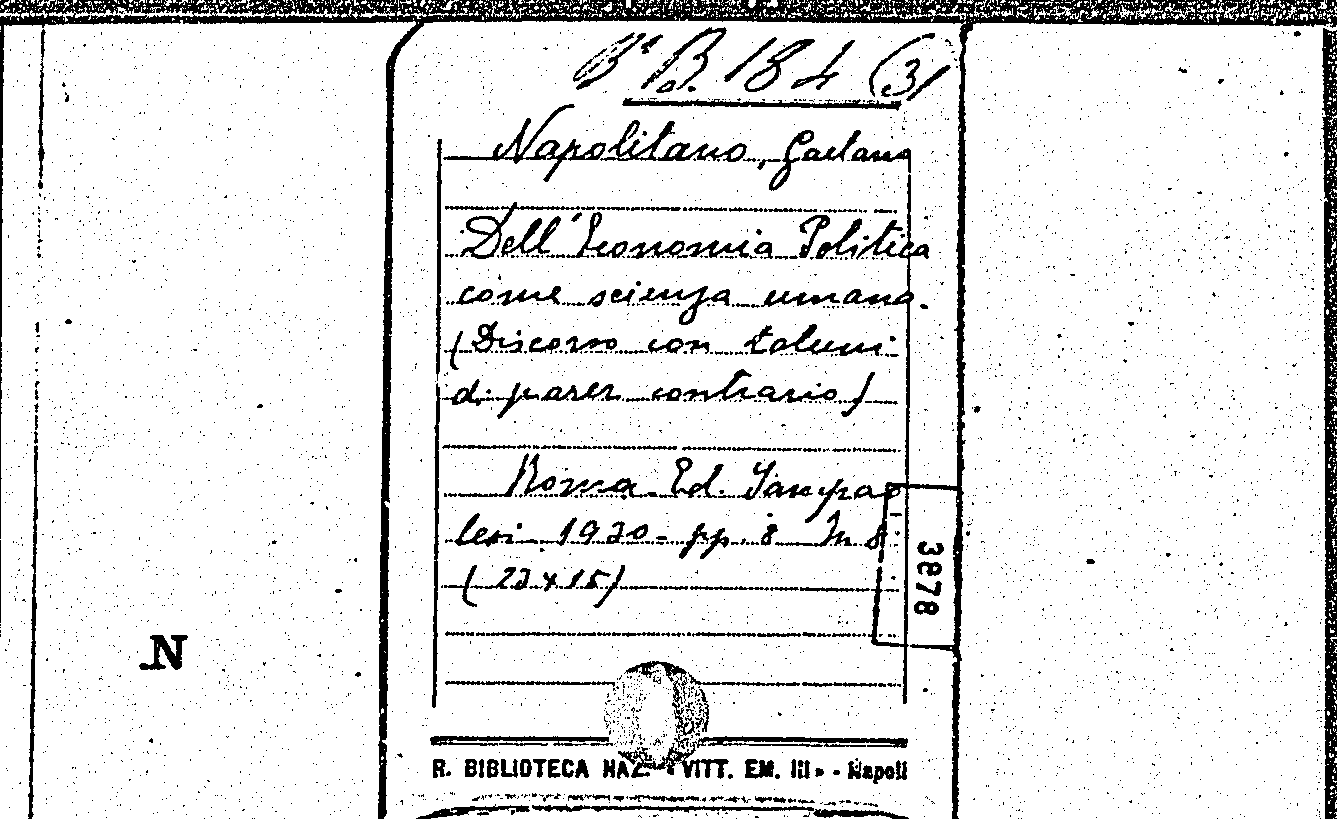 B. 184 (3)
Napolitano, Gaetano
Dell'Economia Politica
come scienza umana.
(Discorso con taluni
di parer contrario)
Roma. Ed. Sampao
lesi 1930 - pp. 8 In 8°
(22 x 15)
3878
N
R. BIBLIOTECA NAZ. « VITT. EM. III » - Napoli